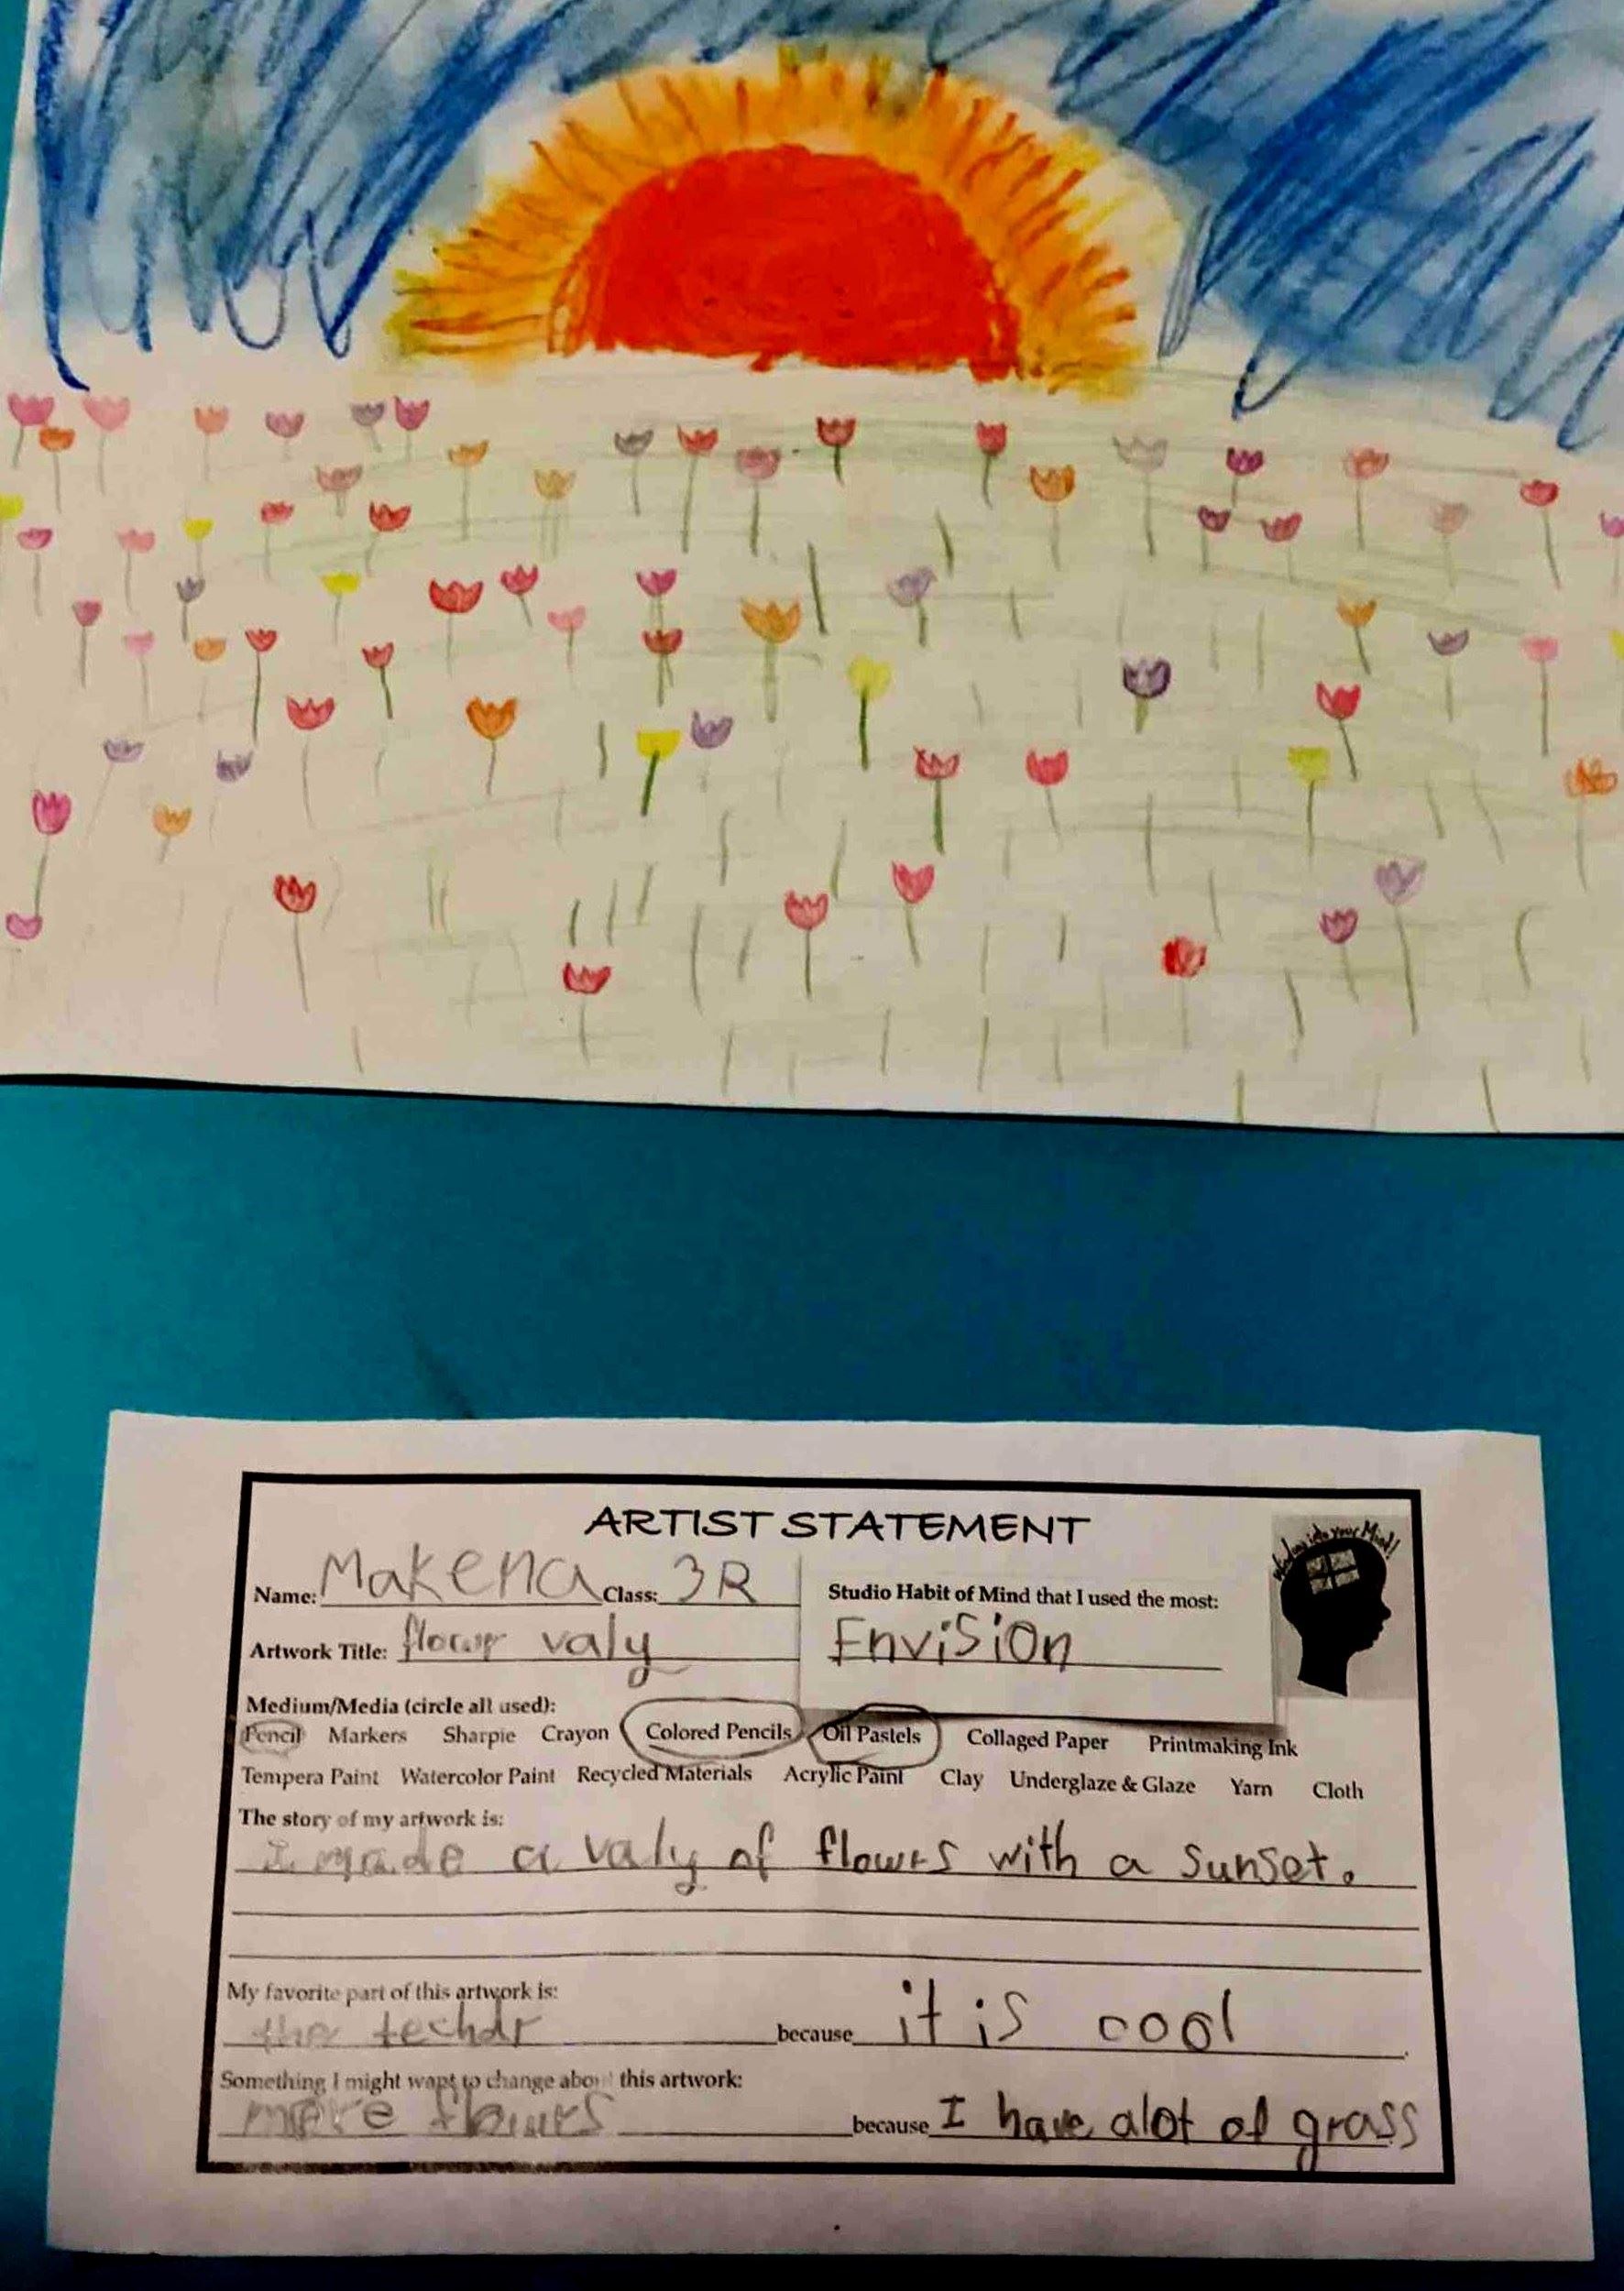 ARTIST STATEMENT
Window into your Mind!
Name: Makena Class: 3R
Studio Habit of Mind that I used the most:
Artwork Title: flower valy
Envision
Medium/Media (circle all used):
Pencil Markers Sharpie Crayon Colored Pencils Oil Pastels Collaged Paper Printmaking Ink
Tempera Paint Watercolor Paint Recycled Materials Acrylic Paint Clay Underglaze & Glaze Yarn Cloth
The story of my artwork is:
I made a valy of flowrs with a sunset.
My favorite part of this artwork is:
the techdr because it is cool
Something I might want to change about this artwork:
more flowrs because I have alot of grass